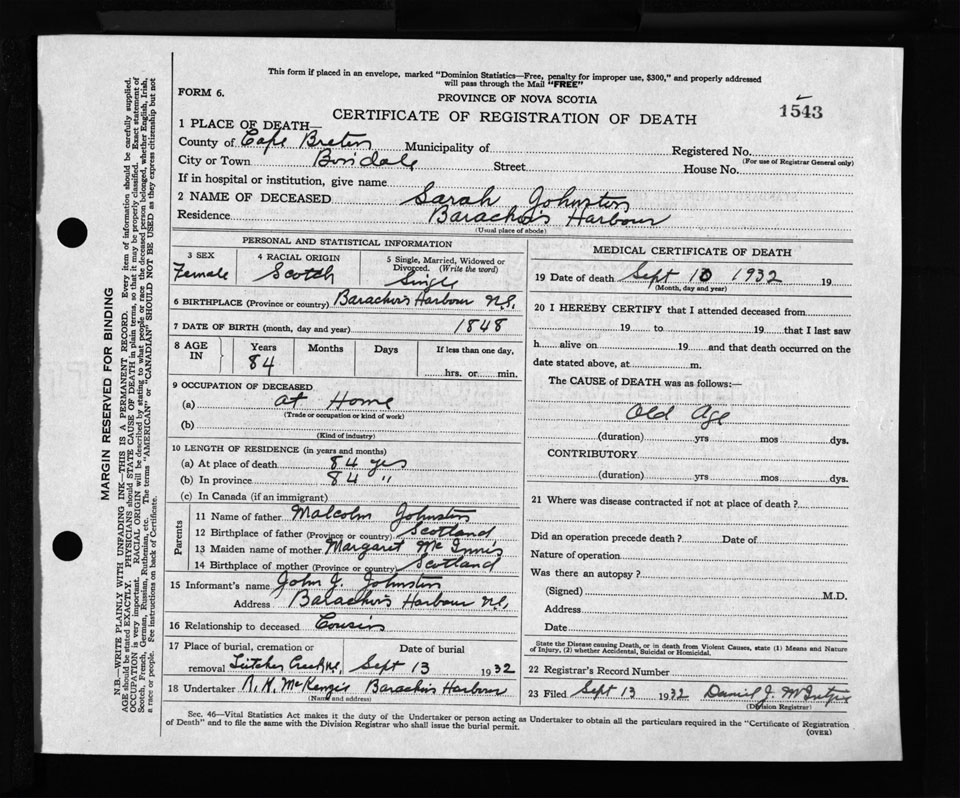 This form if placed in an envelope, marked "Dominion Statistics—Free, penalty for improper use, $300," and properly addressed
will pass through the Mail "FREE"
FORM 6.
PROVINCE OF NOVA SCOTIA
1543
CERTIFICATE OF REGISTRATION OF DEATH
1 PLACE OF DEATH—
County of Cape Breton Municipality of Registered No.
(For use of Registrar General only)
City or Town Boisdale Street House No.
If in hospital or institution, give name
2 NAME OF DECEASED Sarah Johnston
Residence Barachois Harbour
(Usual place of abode)
PERSONAL AND STATISTICAL INFORMATION
3 SEX 4 RACIAL ORIGIN 5 Single, Married, Widowed or
Divorced. (Write the word)
Female Scotch Single
6 BIRTHPLACE (Province or country) Barachois Harbour N.S.
7 DATE OF BIRTH (month, day and year) 1848
8 AGE IN Years Months Days If less than one day,
84 hrs. or min.
9 OCCUPATION OF DECEASED
(a) at Home
(Trade or occupation or kind of work)
(b)
(Kind of industry)
10 LENGTH OF RESIDENCE (in years and months)
(a) At place of death 84 yrs
(b) In province 84 "
(c) In Canada (if an immigrant)
Parents
11 Name of father Malcolm Johnston
12 Birthplace of father (Province or country) Scotland
13 Maiden name of mother Margaret McInnis
14 Birthplace of mother (Province or country) Scotland
15 Informant's name John J. Johnston
Address Barachois Harbour N.S.
16 Relationship to deceased Cousin
17 Place of burial, cremation or Date of burial
removal Sept 13 1932
18 Undertaker McKenzie Barachois Harbour
(Name and address)
MEDICAL CERTIFICATE OF DEATH
19 Date of death Sept 10 1932 19
(Month, day and year)
20 I HEREBY CERTIFY that I attended deceased from
19 to 19 that I last saw
h alive on 19 and that death occurred on the
date stated above, at m.
The CAUSE of DEATH was as follows:—
Old Age
(duration) yrs mos dys.
CONTRIBUTORY
(duration) yrs mos dys.
21 Where was disease contracted if not at place of death?
Did an operation precede death? Date of
Nature of operation
Was there an autopsy?
(Signed) M.D.
Address
Date
State the Disease causing Death, or in death from Violent Causes, state (1) Means and Nature
of Injury, (2) whether Accidental, Suicidal or Homicidal.
22 Registrar's Record Number
23 Filed Sept 13 1932 Daniel J.
(Division Registrar)
Sec. 46—Vital Statistics Act makes it the duty of the Undertaker or person acting as Undertaker to obtain all the particulars required in the "Certificate of Registration
of Death" and to file the same with the Division Registrar who shall issue the burial permit.
(OVER)
MARGIN RESERVED FOR BINDING
N.B.—WRITE PLAINLY WITH UNFADING INK—THIS IS A PERMANENT RECORD. Every item of information should be carefully supplied.
AGE should be stated EXACTLY. PHYSICIANS should STATE CAUSE OF DEATH in plain terms, so that it may be properly classified. Exact statement of
OCCUPATION is very important. RACIAL ORIGIN will be described by stating to what people or race the deceased person belonged, whether English, Irish,
Scotch, French, German, Russian, Ruthenian, etc. The terms "AMERICAN" or "CANADIAN" SHOULD NOT BE USED as they express citizenship but not
a race or people. See instructions on back of Certificate.